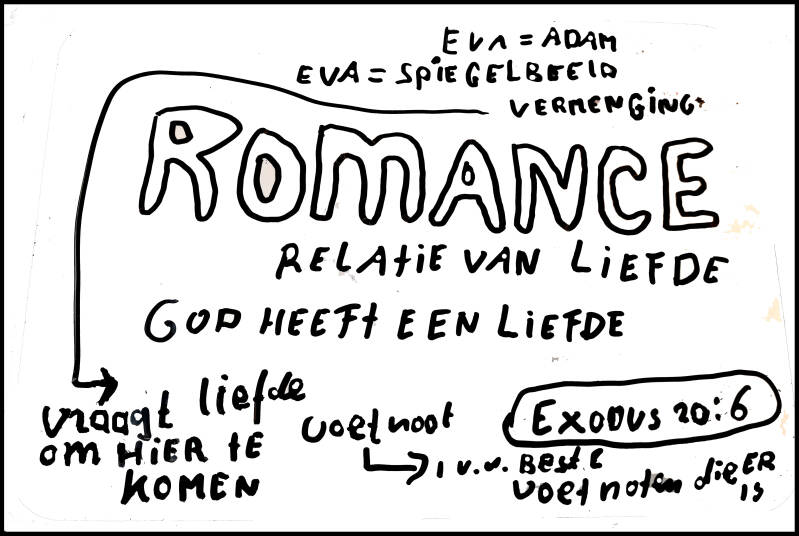 EVA = ADAM
EVA = SPIEGELBEELD
VERMENGING
ROMANCE
RELATIE VAN LIEFDE
GOD HEEFT EEN LIEFDE
vraagt liefde
om HIER te
KOMEN
voetnoot
EXODUS 20:6
1 v.d. BESTE
voetnoten die ER
is